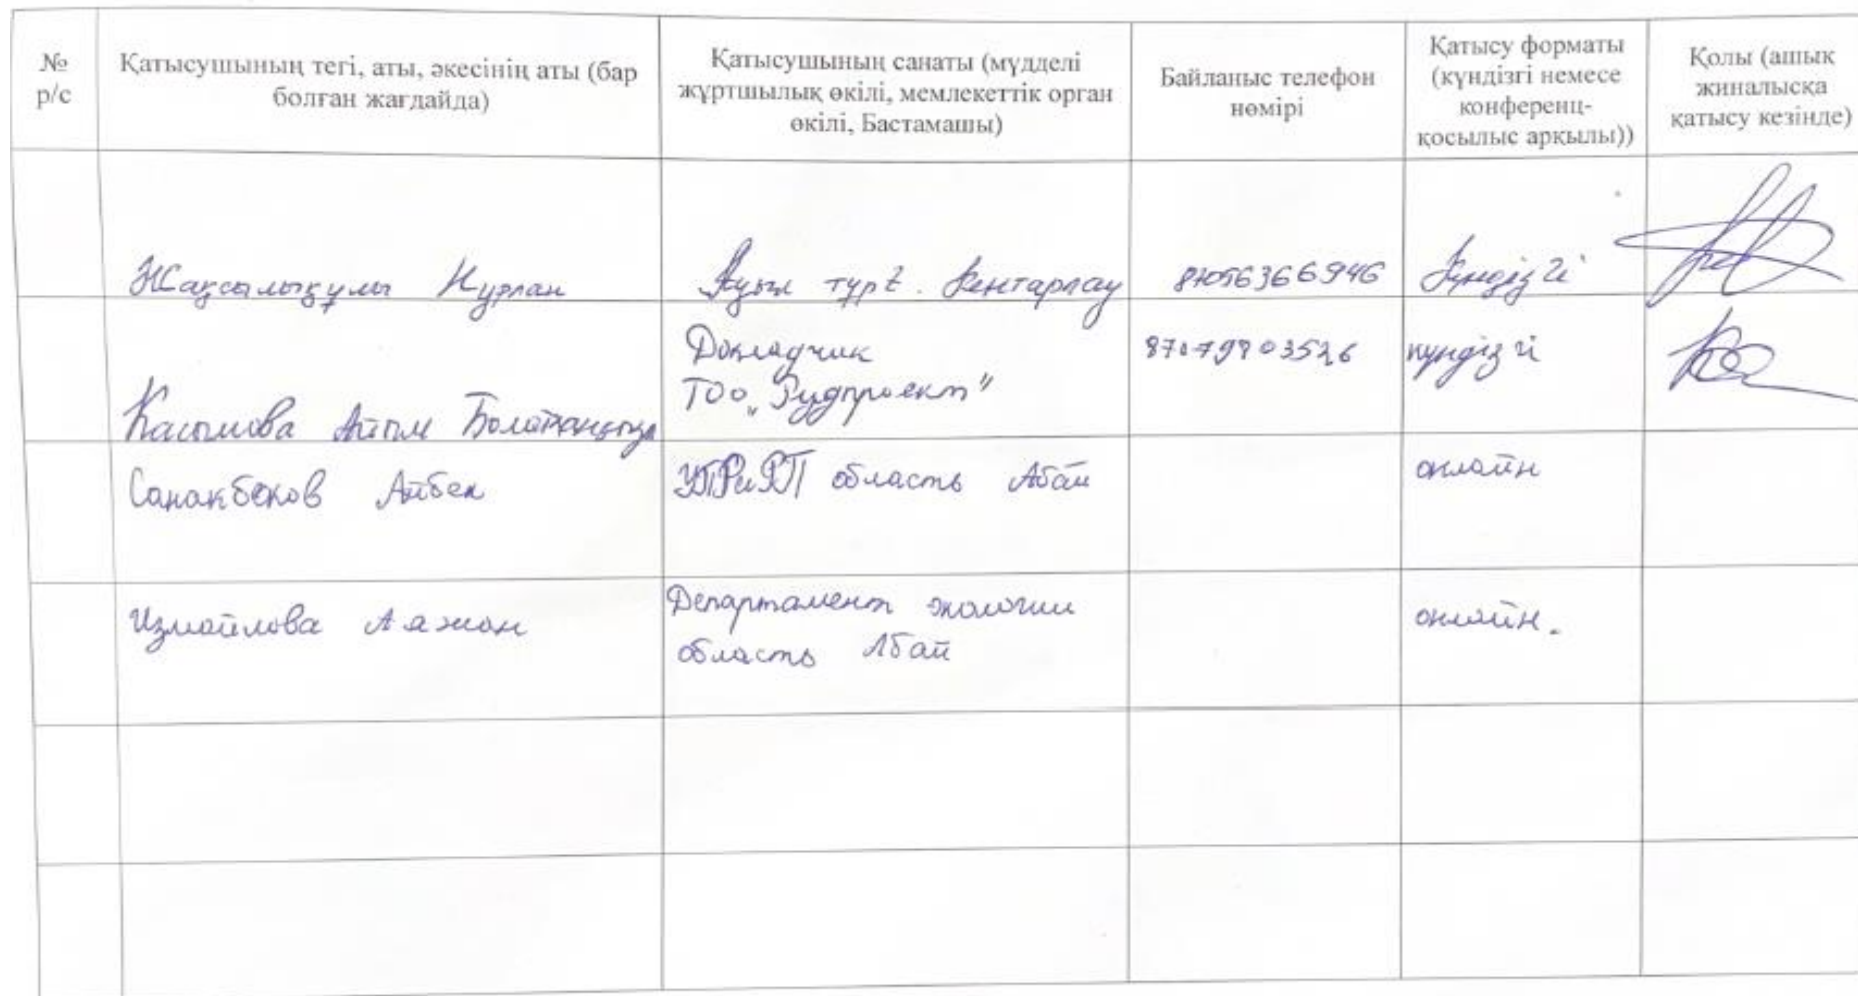 № р/с
Қатысушының тегі, аты, әкесінің аты (бар
болған жағдайда)
Қатысушының санаты (мүдделі
жұртшылық өкілі, мемлекеттік орган
өкілі, Бастамашы)
Байланыс телефон
нөмірі
Қатысу форматы
(күндізгі немесе
конференц-
қосылыс арқылы))
Қолы (ашық
жиналысқа
қатысу кезінде)
Жақсылықұлы Нұрлан
Ауыл тұрғ. Кентарлау
87056366946
Күндізгі
Касымова Айым Болатқанқызы
Докладчик
ТОО „Рудпроект"
87079803526
күндізгі
Санакбеков Айбек
УПРиРП область Абай
онлайн
Измайлова Аяжан
Департамент экологии
область Абай
онлайн.